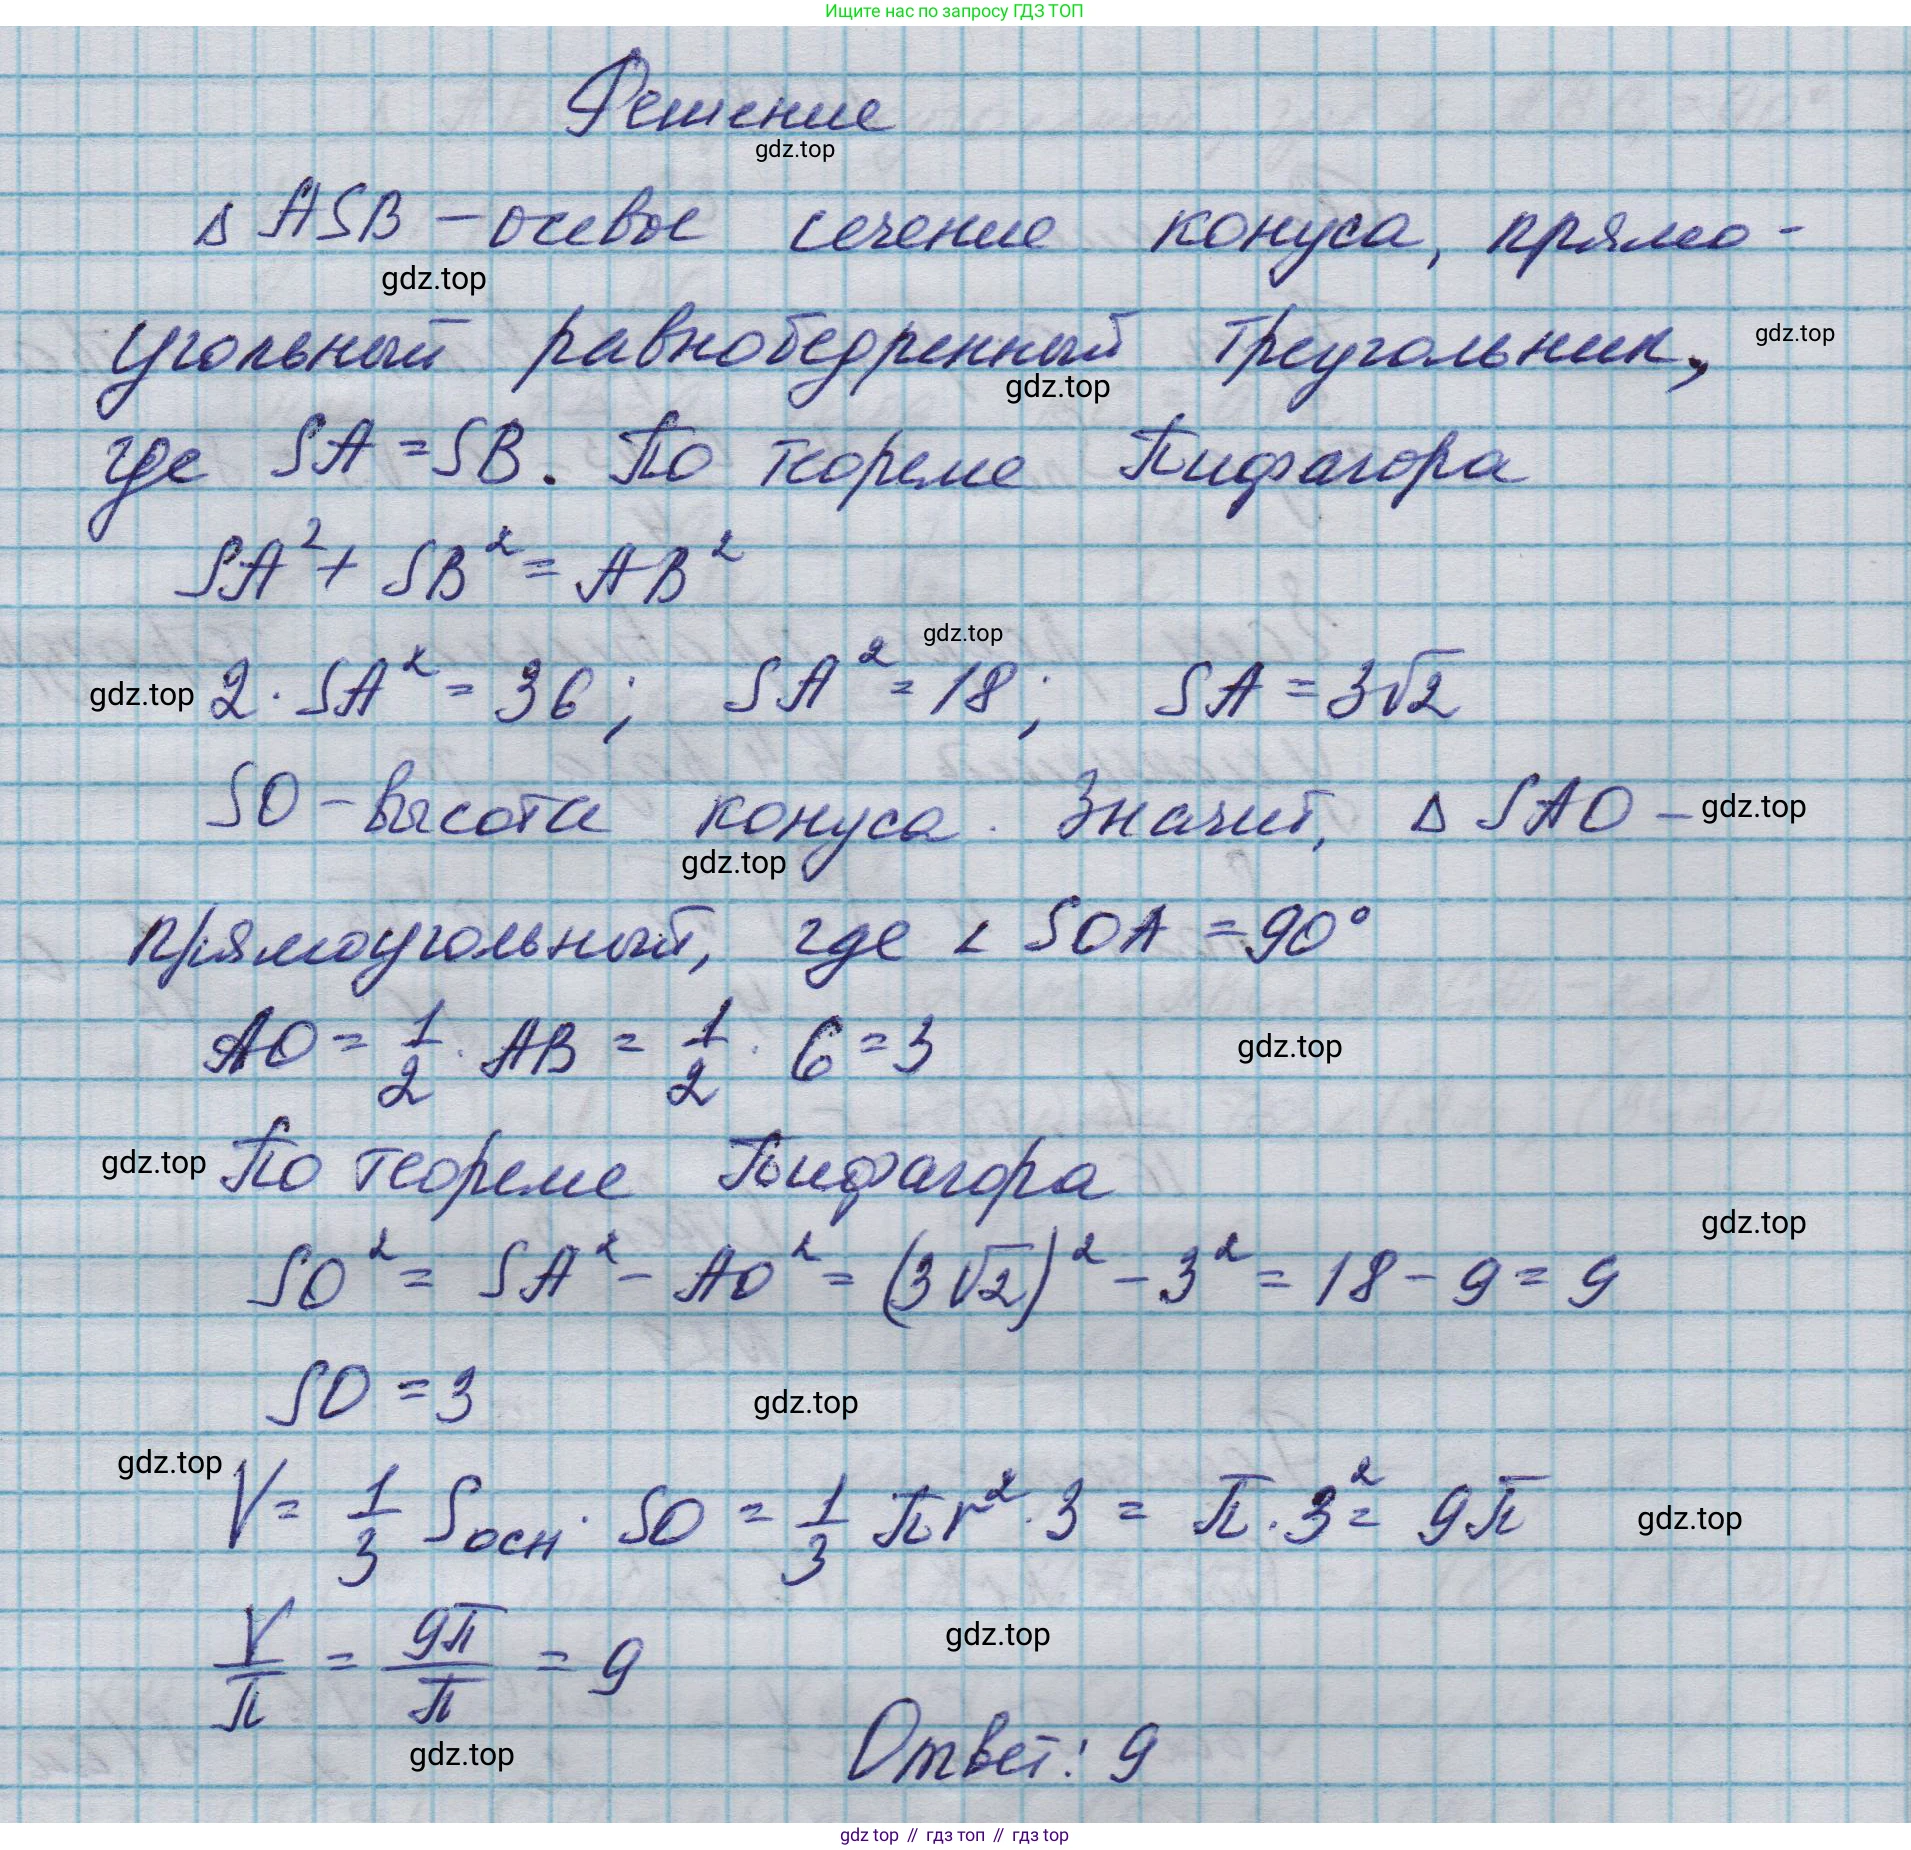 Ищите нас по запросу ГДЗ ТОП
Решение
gdz.top
Δ ASB – осевое сечение конуса, прямо-
gdz.top
угольный равнобедренный треугольник,
gdz.top
gdz.top
где SA = SB. По теореме Пифагора
SA² + SB² = AB²
gdz.top
gdz.top 2 · SA² = 36; SA² = 18; SA = 3√2
SO – высота конуса. Значит, Δ SAO – gdz.top
gdz.top
прямоугольный, где ∠ SOA = 90°
AO = 1/2 · AB = 1/2 · 6 = 3 gdz.top
gdz.top По теореме Пифагора
gdz.top
SO² = SA² – AO² = (3√2)² – 3² = 18 – 9 = 9
SO = 3 gdz.top
gdz.top
V = 1/3 Sосн · SO = 1/3 πr² · 3 = π · 3² = 9π gdz.top
V/π = 9π/π = 9 gdz.top
gdz.top
Ответ: 9
gdz top // гдз топ // гдз top